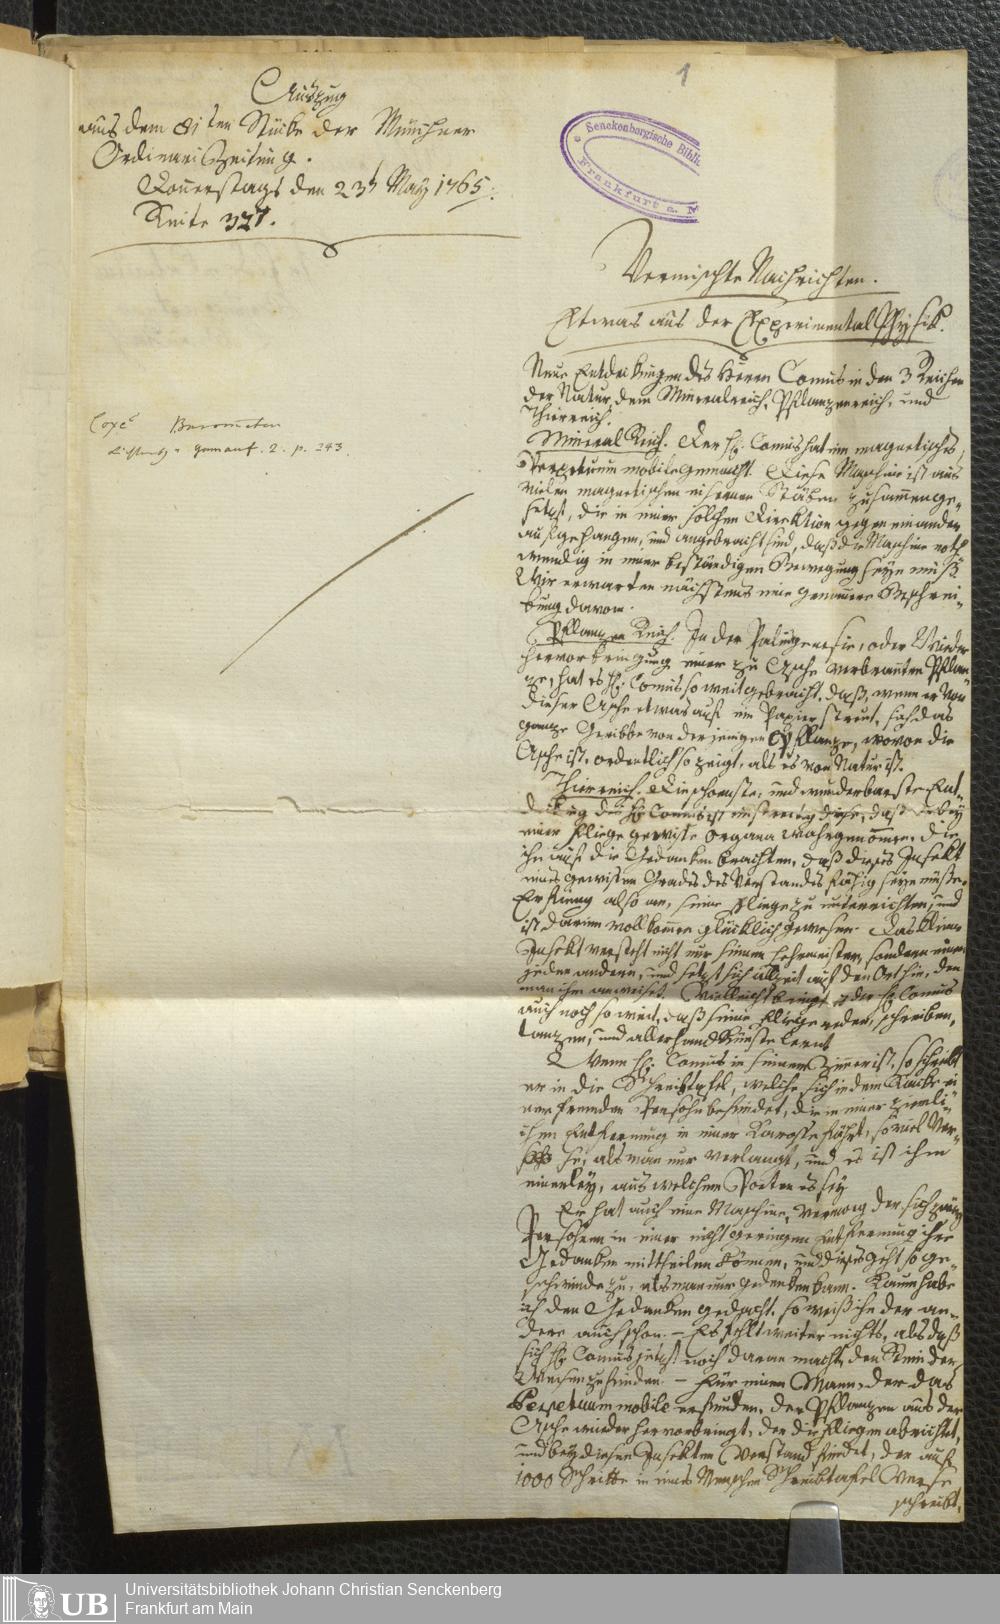 1
Auszug
aus dem 81sten Stücke der Münchner
Ordinari Zeitung.
Donnerstags den 23t May 1765.
Seite 327.
Senckenbergische Bibl
Frankfurt a. M
Vermischte Nachrichten.
Etwas aus der Experimental Physik.
Neue Entdeckungen des Herrn Comus in den 3 Reichen
der Natur, dem Mineralreich, Pflanzenreich, und
Thierreich.
Mineral Reich. Der H. Comus hat ein magnetisches
Perpetuum mobile gemacht. Diese Maschine ist aus
vielen magnetischen eisernen Stäben zusammenge-
setzt, die in einer solchen Direktion gegen einander
aufgehangen, und angebracht sind, daß die Maschine noth-
wendig in einer beständigen Bewegung seyn muß.
Wir erwarten nächstens eine genauere Beschrei-
bung davon.
Pflanzen Reich. In der Palingenesie, oder Wieder
hervorbringung einer zu Asche verbrannten Pflan-
ze, hat es H. Comus so weit gebracht, daß, wenn er von
dieser Asche etwas auf ein Papier streut, sich das
ganze Gerippe von derjenigen Pflanze, wovon die
Asche ist, ordentlich so zeigt, als es von Natur ist.
Thierreich. Die schönste, und wunderbarste Ent-
deckung des H. Comus ist unstreitig diese, daß er bey
einer Fliege gewisse Organa wahrgenommen, die
ihn auf die Gedanken brachten, daß dieses Insekt
eines gewissen Grades des Verstandes fähig seyn müße.
Er fieng also an, seine Fliege zu unterrichten, und
ist darinn vollkommen glücklich gewesen. Das kleine
Insekt versteht nicht nur seinen Lehrmeister, sondern einen
jeden andern, und setzt sich allzeit auf den Ort hin, den
man ihm anweiset. Vielleicht bringt es der H. Comus
auch noch so weit, daß seine Fliege reden, schreiben,
tanzen, und allerhand Künste lernt
Wenn H. Comus in seinem Zimmer ist, so schreibt
er in die Schreibtafel, welche sich in dem Sacke ei
ner fremden Persohn befindet, die in einer ziemli-
chen Entfernung in einer Karosse fährt, so viel Ver-
se, als man nur verlangt, und es ist ihm
einerley, aus welchem Poeten es sey
Er hat auch eine Maschine, vermög der sich zwey
Persohnen in einer nicht geringen Entfernung ihre
Gedanken mittheilen können, und dieses geht so ge-
schwinde zu, als man nur gedenken kann. Kaum habe
ich den Gedanken gedacht, so weiß ihn der an-
dere auch schon. – Es fehlt weiter nichts, als daß
sich H. Comus jetzt noch daran macht, den Stein der
Weisen zu finden. – Für einen Mann, der das
Perpetuum mobile erfunden, der Pflanzen aus der
Asche wieder hervorbringt, der die Fliegen abrichtet,
und bey diesen Insekten Verstand findet, der auf
1000 Schritte in eines Menschen Schreibtafel Verse
schreibt,
Barometer
2. p. 243.
UB
Universitätsbibliothek Johann Christian Senckenberg
Frankfurt am Main